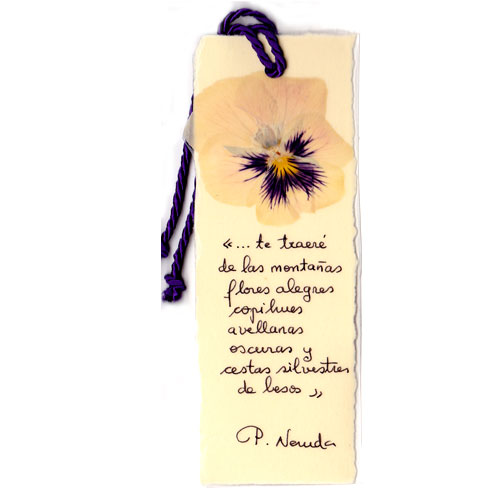 «... te traeré
de las montañas
flores alegres
copihues
avellanas
oscuras y
cestas silvestres
de besos »
P. Neruda